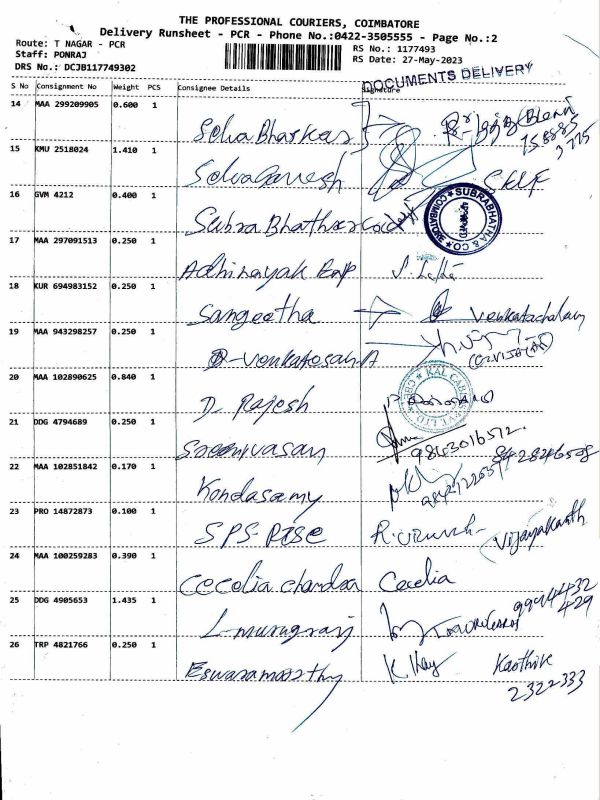 THE PROFESSIONAL COURIERS, COIMBATORE
Delivery Runsheet - PCR - Phone No.:0422-3505555 - Page No.:2
Route: T NAGAR - PCR
Staff: PONRAJ
DRS No.: DCJB117749302
RS No.: 1177493
RS Date: 27-May-2023
DOCUMENTS DELIVERY
S No Consignment No Weight PCS Consignee Details Signature
14 MAA 299209905 0.600 1 Selva Bharkas
15 KMU 2518024 1.410 1 Selva Ganesh
16 GVM 4212 0.400 1 Subra Bhathar
SUBRABHATHA & CO ★ COIMBATORE ★
17 MAA 297091513 0.250 1 Adhinayak Enp
18 KUR 694983152 0.250 1 Sangeetha Venkatachalam
19 MAA 943298257 0.250 1 Venkatosan A
20 MAA 102890625 0.840 1 D. Rajesh
21 DDG 4794689 0.250 1 Sreenivasan 9843016572.
22 MAA 102851842 0.170 1 Kondasamy
23 PRO 14872873 0.100 1 SPS-Rise Vijayakanth
24 MAA 100259283 0.390 1 Cecelia chandra Cecelia
25 DDG 4905653 1.435 1 L-murugraj 9994432
429
26 TRP 4821766 0.250 1 Eswaramoorthy Karthik
2322333